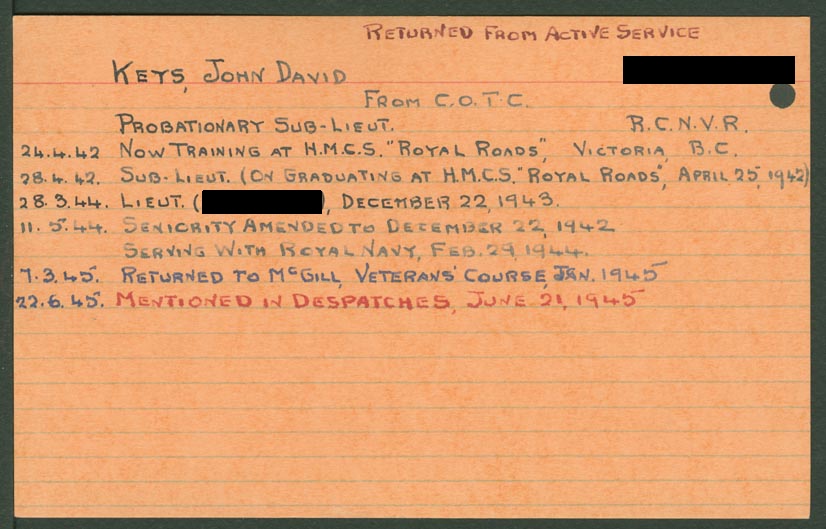 RETURNED FROM ACTIVE SERVICE
KEYS, JOHN DAVID
FROM C.O.T.C.
PROBATIONARY SUB-LIEUT. R.C.N.V.R.
24.4.42 NOW TRAINING AT H.M.C.S. "ROYAL ROADS", VICTORIA, B.C.
28.4.42. SUB-LIEUT. (ON GRADUATING AT H.M.C.S. "ROYAL ROADS", APRIL 25, 1942)
28.3.44. LIEUT. ( ), DECEMBER 22, 1943.
11.5.44. SENIORITY AMENDED TO DECEMBER 22, 1942
SERVING WITH ROYAL NAVY, FEB. 29, 1944.
7.3.45. RETURNED TO McGILL, VETERANS' COURSE, JAN. 1945
22.6.45. MENTIONED IN DESPATCHES, JUNE 21, 1945